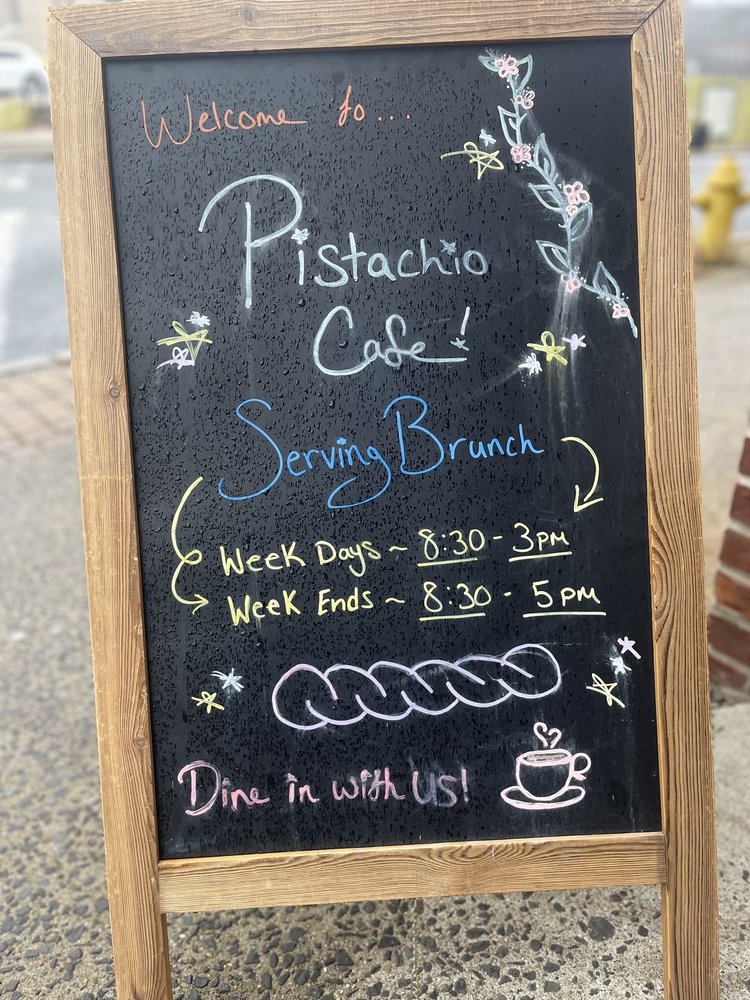 Welcome to...
Pistachio
Cafe!
Serving Brunch
Week Days ~ 8:30 - 3PM
Week Ends ~ 8:30 - 5PM
Dine in with US!